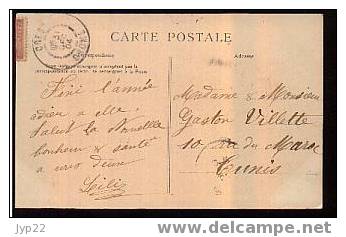 CARTE POSTALE
Correspondance
Adresse
Fini l'année
adieu a elle.
Salut la Nouvelle
bonheur & santé
a vous deux
Lili
Madame & Monsieur
Gaston Villette
10 rue du Maroc
Tunis
© jyp22
delcampe.net